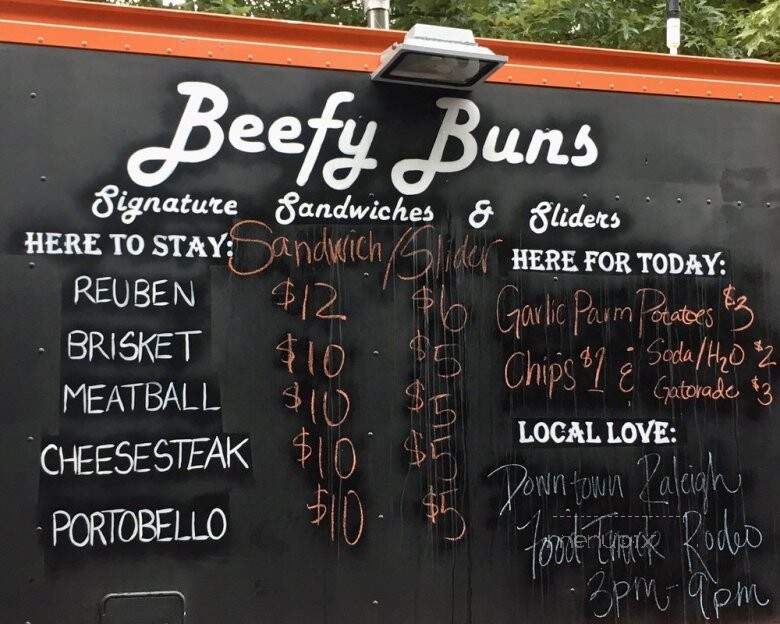 Beefy Buns
Signature Sandwiches & Sliders
HERE TO STAY: Sandwich/Slider
REUBEN $12 $6
BRISKET $10 $5
MEATBALL $10 $5
CHEESESTEAK $10 $5
PORTOBELLO $10 $5
HERE FOR TODAY:
Garlic Parm Potatoes $3
Chips $1 & Soda/H2O $2
Gatorade $3
LOCAL LOVE:
Downtown Raleigh
Food Truck Rodeo
3pm-9pm